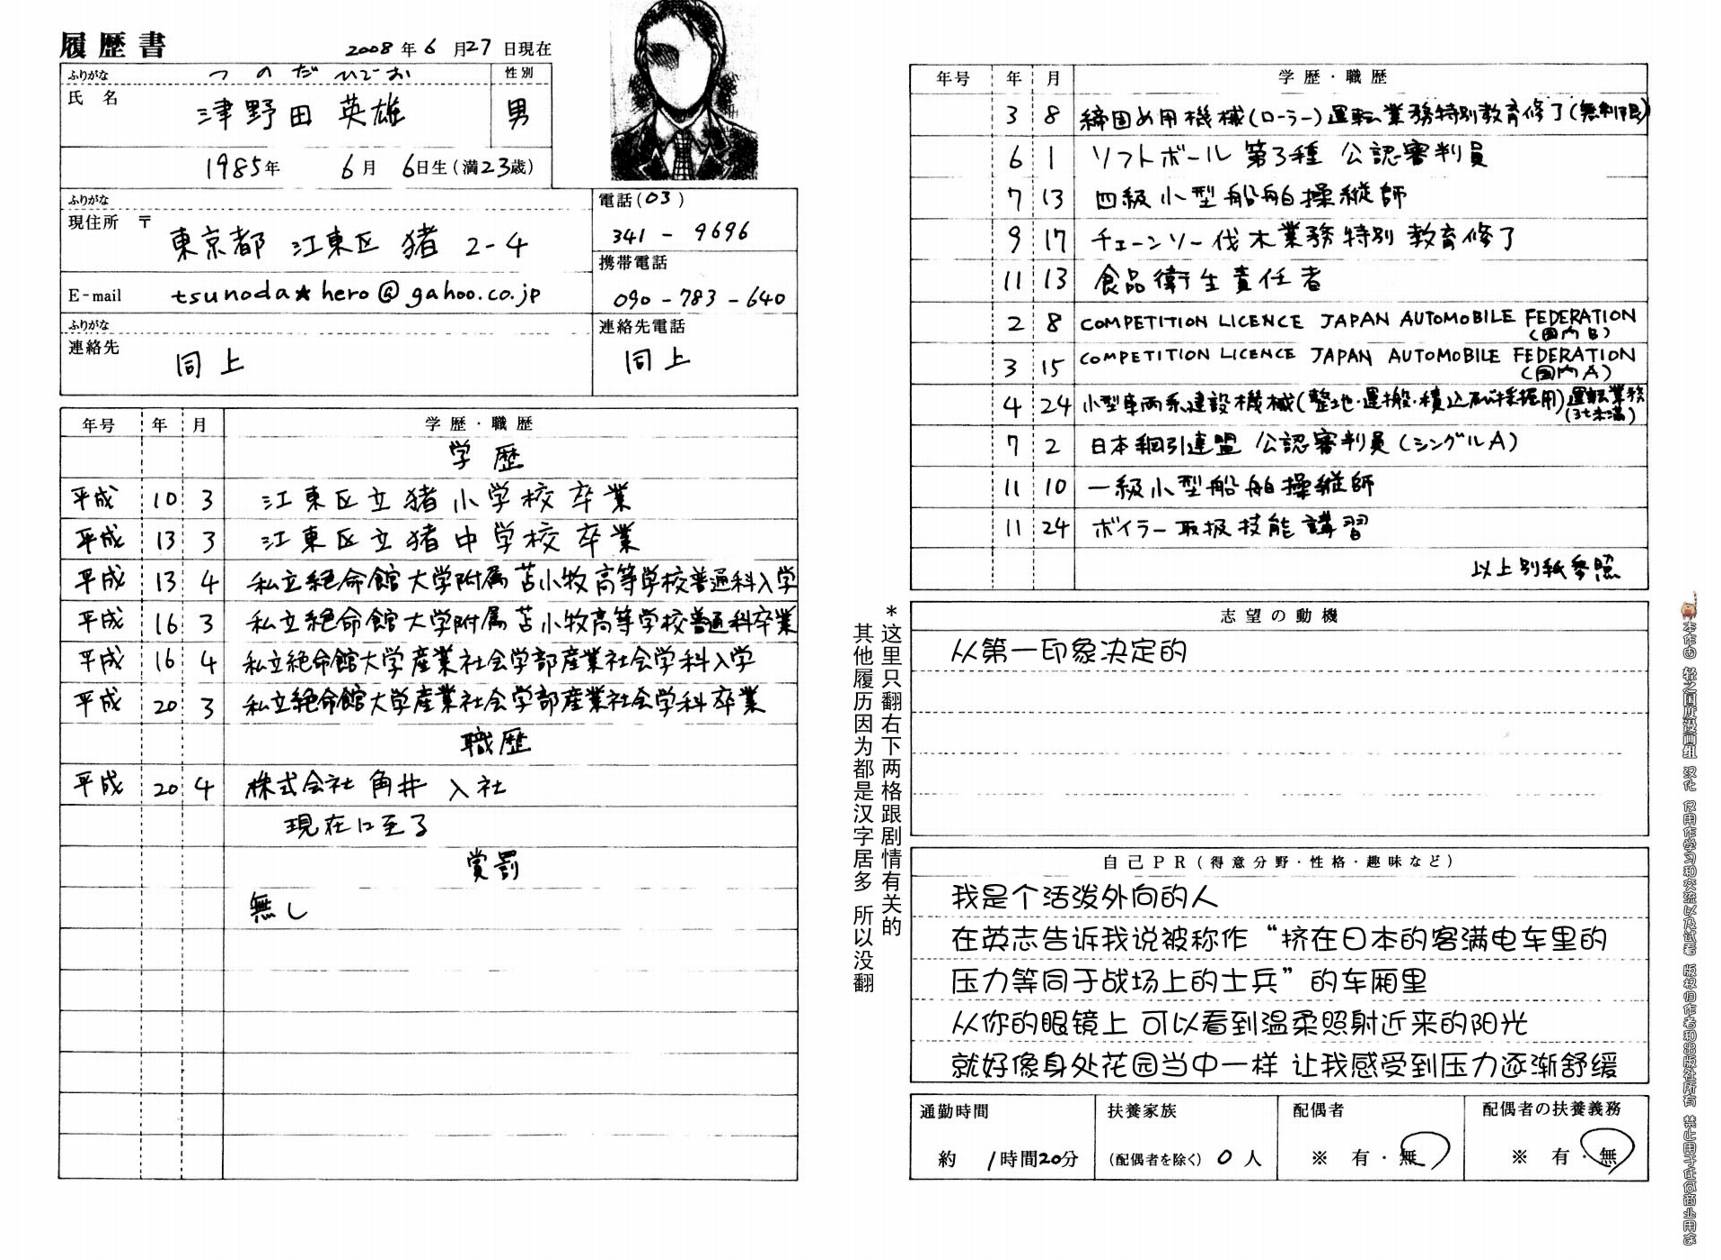 履歴書
2008年6月27日現在
ふりがな つのだ ひでお 性別
氏名 津野田 英雄 男
1985年 6月 6日生(満23歳)
ふりがな 電話(03)
現住所 〒 東京都 江東区 猪 2-4 341-9696
携帯電話
E-mail tsunoda★hero@gahoo.co.jp 090-783-640
ふりがな 連絡先電話
連絡先 同上 同上
年号 年 月 学歴・職歴
学歴
平成 10 3 江東区立猪小学校卒業
平成 13 3 江東区立猪中学校卒業
平成 13 4 私立絶命館大学附属苫小牧高等学校普通科入学
平成 16 3 私立絶命館大学附属苫小牧高等学校普通科卒業
平成 16 4 私立絶命館大学産業社会学部産業社会学科入学
平成 20 3 私立絶命館大学産業社会学部産業社会学科卒業
職歴
平成 20 4 株式会社 角井 入社
現在に至る
賞罰
無し
年号 年 月 学歴・職歴
3 8 締固め用機械(ローラー)運転業務特別教育修了(無制限)
6 1 ソフトボール 第3種 公認審判員
7 13 四級小型船舶操縦師
9 17 チェーンソー伐木業務特別教育修了
11 13 食品衛生責任者
2 8 COMPETITION LICENCE JAPAN AUTOMOBILE FEDERATION
(国内B)
3 15 COMPETITION LICENCE JAPAN AUTOMOBILE FEDERATION
(国内A)
4 24 小型車両系建設機械(整地・運搬・積込み及び掘削用)運転業務
(3t未満)
7 2 日本綱引連盟 公認審判員(シングルA)
11 10 一級小型船舶操縦師
11 24 ボイラー取扱技能講習
以上別紙参照
*这里只翻右下两格跟剧情有关的
其他履历因为都是汉字居多 所以没翻
志望の動機
从第一印象决定的
自己PR(得意分野・性格・趣味など)
我是个活泼外向的人
在英志告诉我说被称作“挤在日本的客满电车里的
压力等同于战场上的士兵”的车厢里
从你的眼镜上 可以看到温柔照射近来的阳光
就好像身处花园当中一样 让我感受到压力逐渐舒缓
通勤時間 扶養家族 配偶者 配偶者の扶養義務
約 1時間20分 (配偶者を除く) 0人 ※ 有・無 ※ 有・無
本作由 轻之国度漫画组 汉化 仅用作学习和交流以及试看 版权归作者和出版社所有 禁止用于任何商业用途